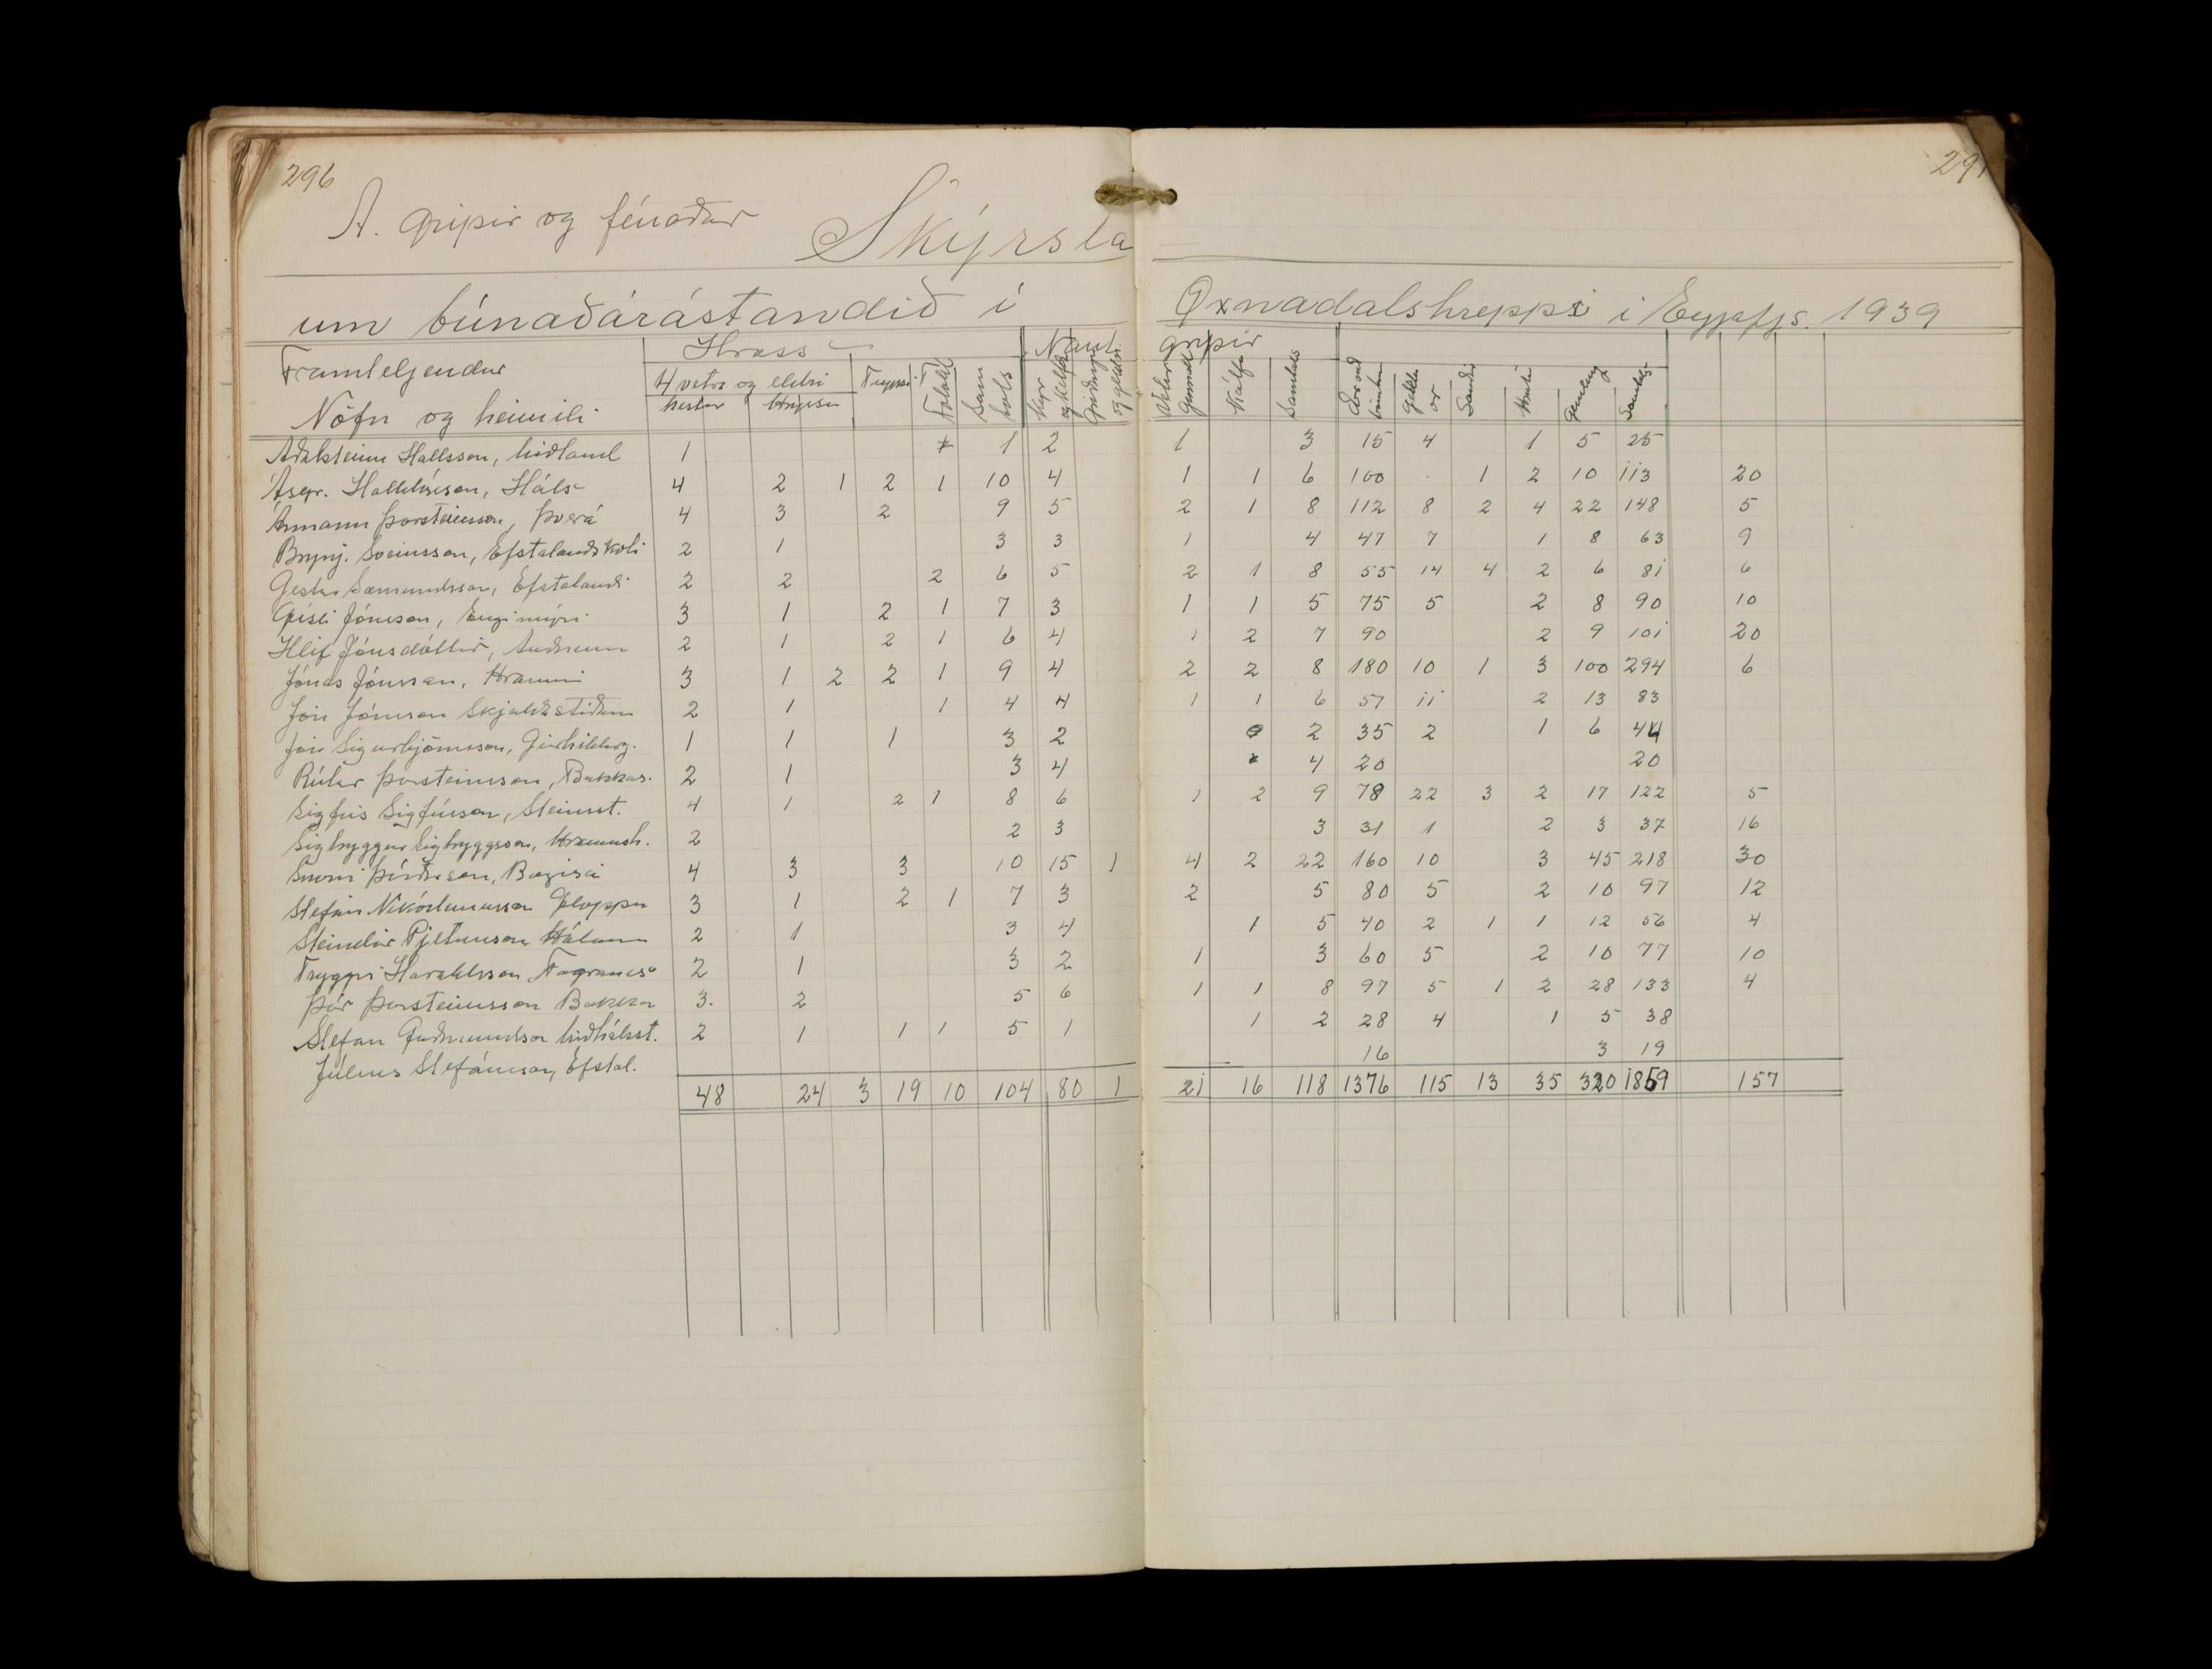 296
297
A. gripir og fénaður
Skýrsla
um búnaðarástandið í Öxnadalshreppi í Eyjafjs. 1939
Framteljendur
Nöfn og heimili
Hross
Naut gripir
4 vetra og eldri
Hestar Hryssur Tryppi Folöld Sam tals Kýr Geldneyti Vetur gamalt Kálfa Samtals Geld ar Sauðir Hrútar Gemling Samtals
Aðalsteinn Hallsson, Miðland 1 1 2 1 3 15 4 1 5 25
Ásgr. Halldórsson, Háls 4 2 1 2 1 10 4 1 1 6 100 - 1 2 10 113 20
Ármann Þorsteinsson, Þverá 4 3 2 9 5 2 1 8 112 8 2 4 22 148 5
Brynj. Sveinsson, Efstalandskoti 2 1 3 3 1 4 47 7 1 8 63 9
Gestur Sæmundsson, Efstalandi 2 2 2 6 5 2 1 8 55 14 4 2 6 81 6
Gísli Jónsson, Engimýri 3 1 2 1 7 3 1 1 5 75 5 2 8 90 10
Hlíf Jónsdóttir, Auðnum 2 1 2 1 6 4 1 2 7 90 2 9 101 20
Jónas Jónsson, Hrauni 3 1 2 2 1 9 4 2 2 8 180 10 1 3 100 294 6
Jón Jónsson Skjaldastöðum 2 1 1 4 4 1 1 6 57 11 2 13 83
Jón Sigurbjörnsson, 1 1 1 3 2 2 35 2 1 6 44
Rútur Þorsteinsson, Bakkas. 2 1 3 4 4 20 20
Sigfús Sigfússon, Steinsst. 4 1 2 1 8 6 1 2 9 78 22 3 2 17 122 5
Sigtryggur Sigtryggsson, Hraunsh. 2 2 3 3 31 1 2 3 37 16
Snorri Þórðarson, Bægisá 4 3 3 10 15 1 4 2 22 160 10 3 45 218 30
Stefán Nikódemusson Gloppu 3 1 2 1 7 3 2 5 80 5 2 10 97 12
Steindór Pjetursson, Hólum 2 1 3 4 1 5 40 2 1 1 12 56 4
Tryggvi Haraldsson, Fagranes 2 1 3 2 1 3 60 5 2 10 77 10
Þór Þorsteinsson Bakka 3. 2 5 6 1 1 8 97 5 1 2 28 133 4
Stefan Guðmundsson Miðhálsst. 2 1 1 1 5 1 1 2 28 4 1 5 38
Júlíus Stefánsson, Efstal. 16 3 19
48 24 3 19 10 104 80 1 21 16 118 1376 115 13 35 320 1859 157